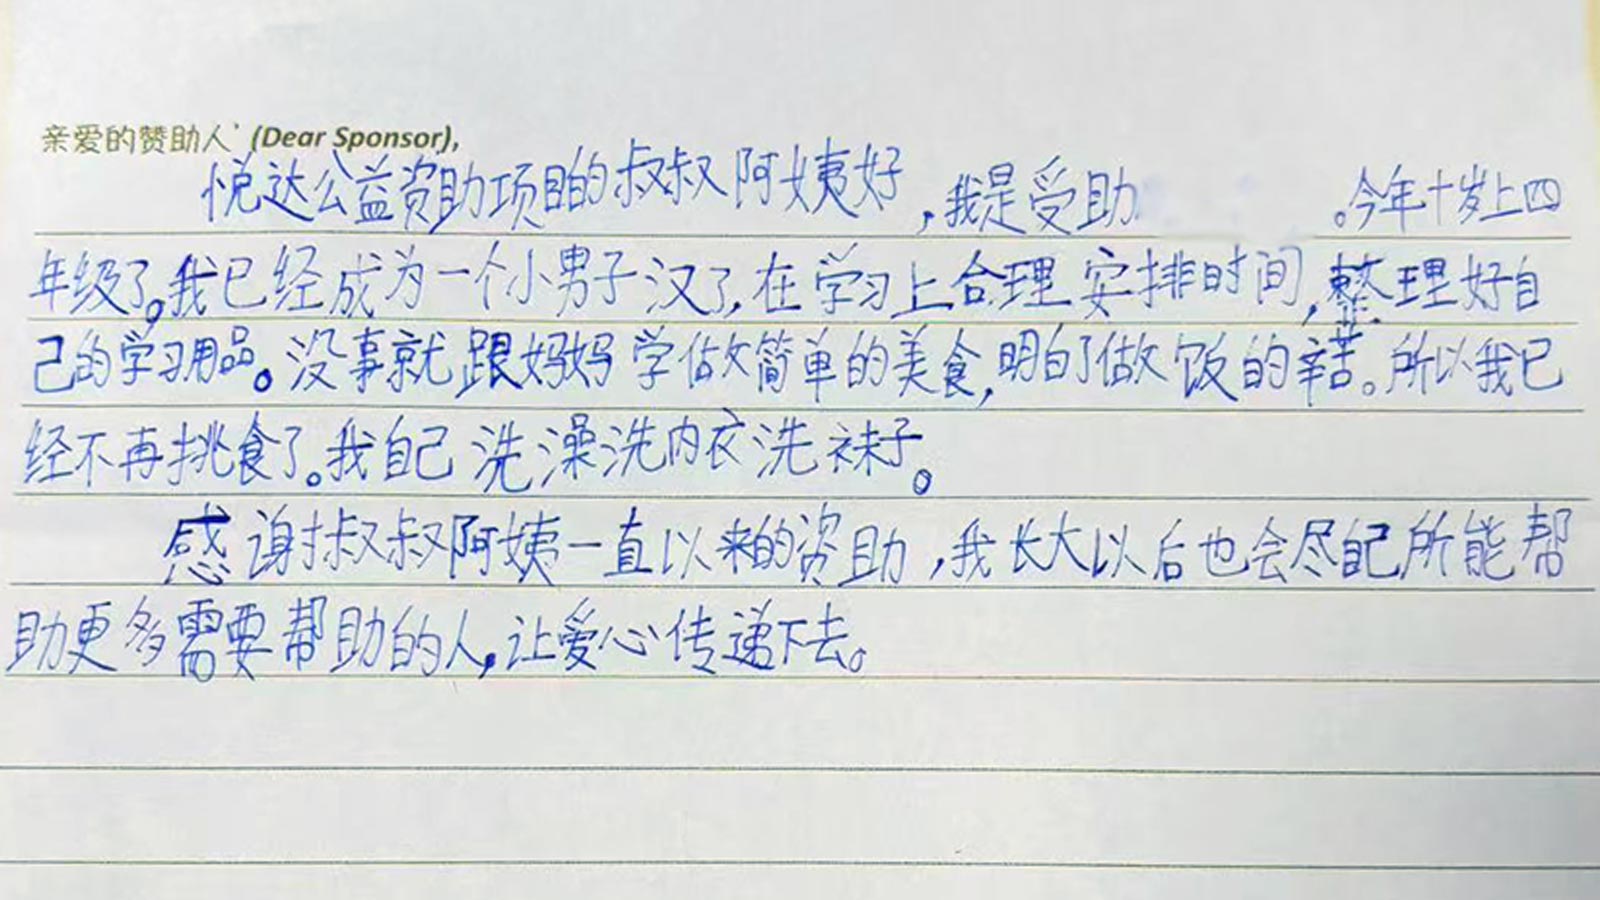 亲爱的赞助人 (Dear Sponsor),
悦达公益资助项目的叔叔阿姨好,我是受助。今年十岁上四
年级了。我已经成为一个小男子汉了,在学习上合理安排时间,整理好自
己的学习用品。没事就跟妈妈学做简单的美食,明白了做饭的辛苦。所以我已
经不再挑食了。我自己洗澡洗内衣洗袜子。
感谢叔叔阿姨一直以来的资助,我长大以后也会尽自己所能帮
助更多需要帮助的人,让爱心传递下去。